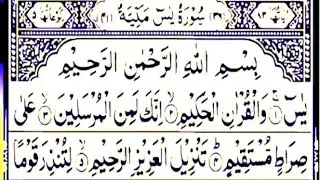 سُوْرَةُ يٰسٓ مَكِّيَّةٌ
بِسْمِ اللّٰهِ الرَّحْمٰنِ الرَّحِيْمِ
يٰسٓ ۚ﴿١﴾ وَالْقُرْاٰنِ الْحَكِيْمِ ۙ﴿٢﴾ اِنَّكَ لَمِنَ الْمُرْسَلِيْنَ ۙ﴿٣﴾ عَلٰى
صِرَاطٍ مُّسْتَقِيْمٍ ؕ﴿٤﴾ تَنْزِيْلَ الْعَزِيْزِ الرَّحِيْمِ ۙ﴿٥﴾ لِتُنْذِرَ قَوْمًا